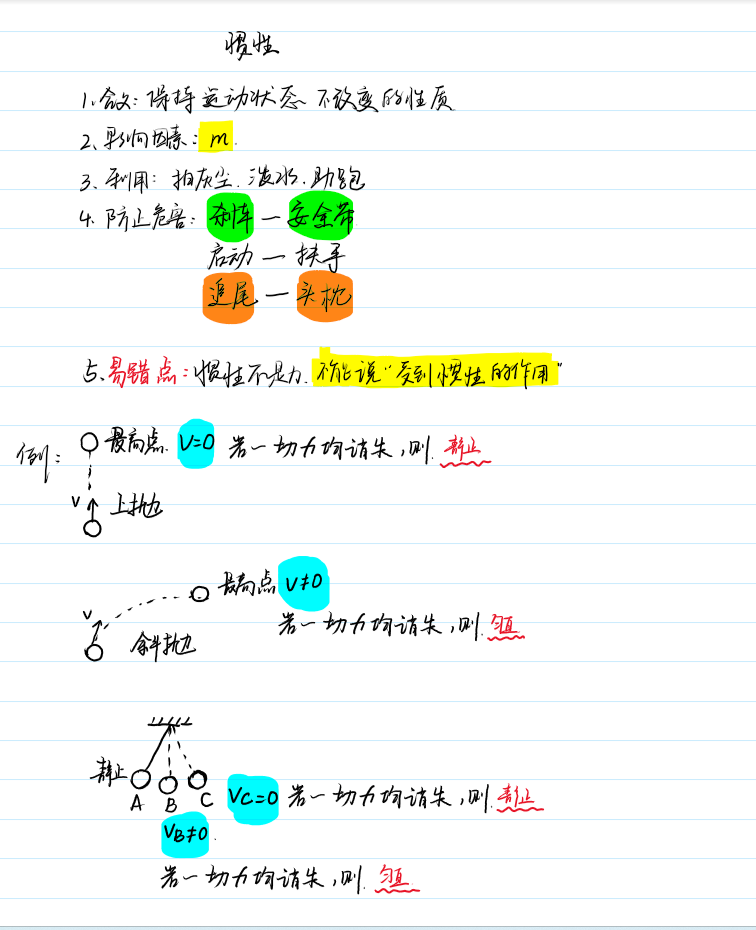 惯性
1、含义：保持运动状态不改变的性质
2、影响因素：m
3、利用：拍灰尘、泼水、助跑
4、防止危害：刹车—安全带
启动—扶手
追尾—头枕
5、易错点：惯性不是力、不能说“受到惯性的作用”
例：最高点 V=0 若一切力均消失，则 静止
V 上抛
最高点 V≠0
若一切力均消失，则 匀直
V 斜抛
静止 A B C VC=0 若一切力均消失，则 静止
VB≠0
若一切力均消失，则 匀直